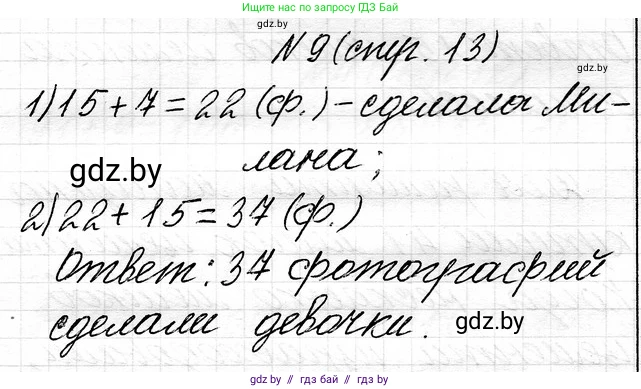 Ищите нас по запросу ГДЗ Бай
gdz.by
N 9 (стр. 13)
gdz.by
1) 15 + 7 = 22 (ф.) - сделала Ми-
лана;
gdz.by
2) 22 + 15 = 37 (ф.)
Ответ: 37 фотографий
сделали девочки.
gdz.by
gdz.by // гдз бай // gdz.by